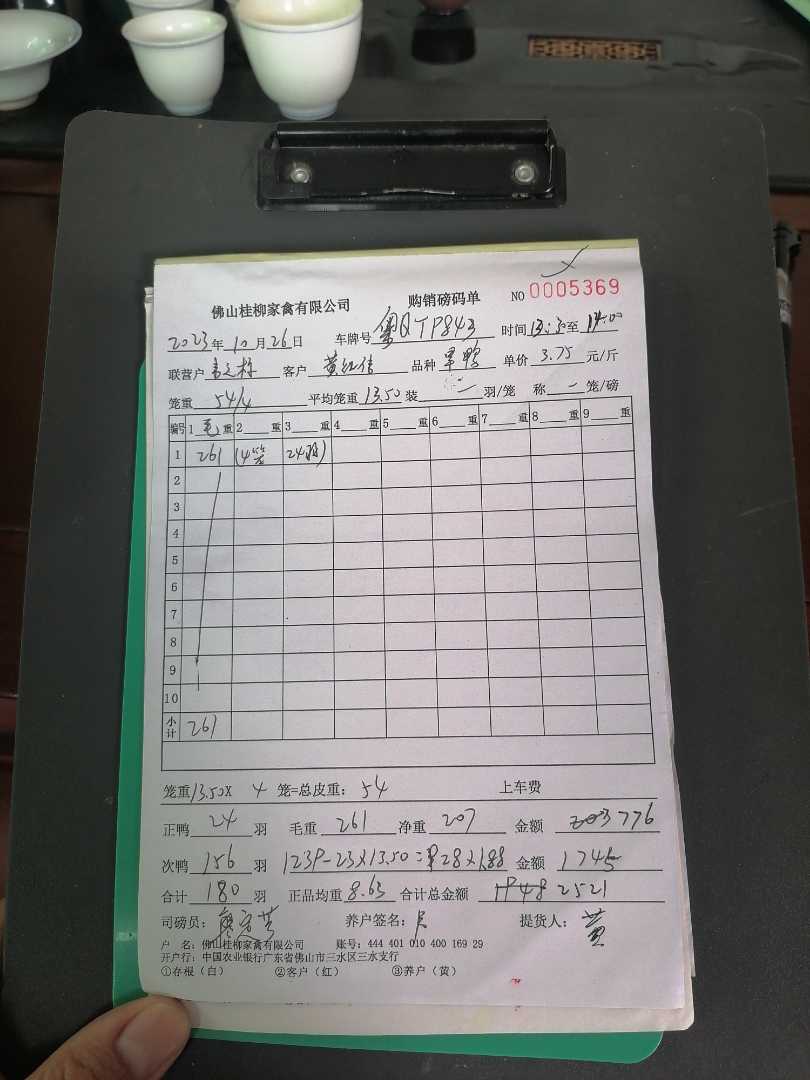 佛山桂柳家禽有限公司 购销磅码单 NO 0005369
2023年10月26日 车牌号 粤QTP843 时间 至 14:00
联营户 客户 黄红信 品种 单鸭 单价 3.75 元/斤
笼重 54/4 平均笼重 13.50 装 羽/笼 称 一 笼/磅
编号 1 毛 重 2 重 3 重 4 重 5 重 6 重 7 重 8 重 9 重
1 261 (4笼 24羽)
2
3
4
5
6
7
8
9
10
小计 261
笼重 13.50 X 4 笼=总皮重: 54 上车费
正鸭 24 羽 毛重 261 净重 207 金额 776
次鸭 156 羽 1239-23X13.50= 928X1.88 金额 1745
合计 180 羽 正品均重 8.63 合计总金额 2521
司磅员: 养户签名: 提货人: 黄
户 名: 佛山桂柳家禽有限公司 账号: 444 401 010 400 169 29
开户行: 中国农业银行广东省佛山市三水区三水支行
①存根(白) ②客户(红) ③养户(黄)